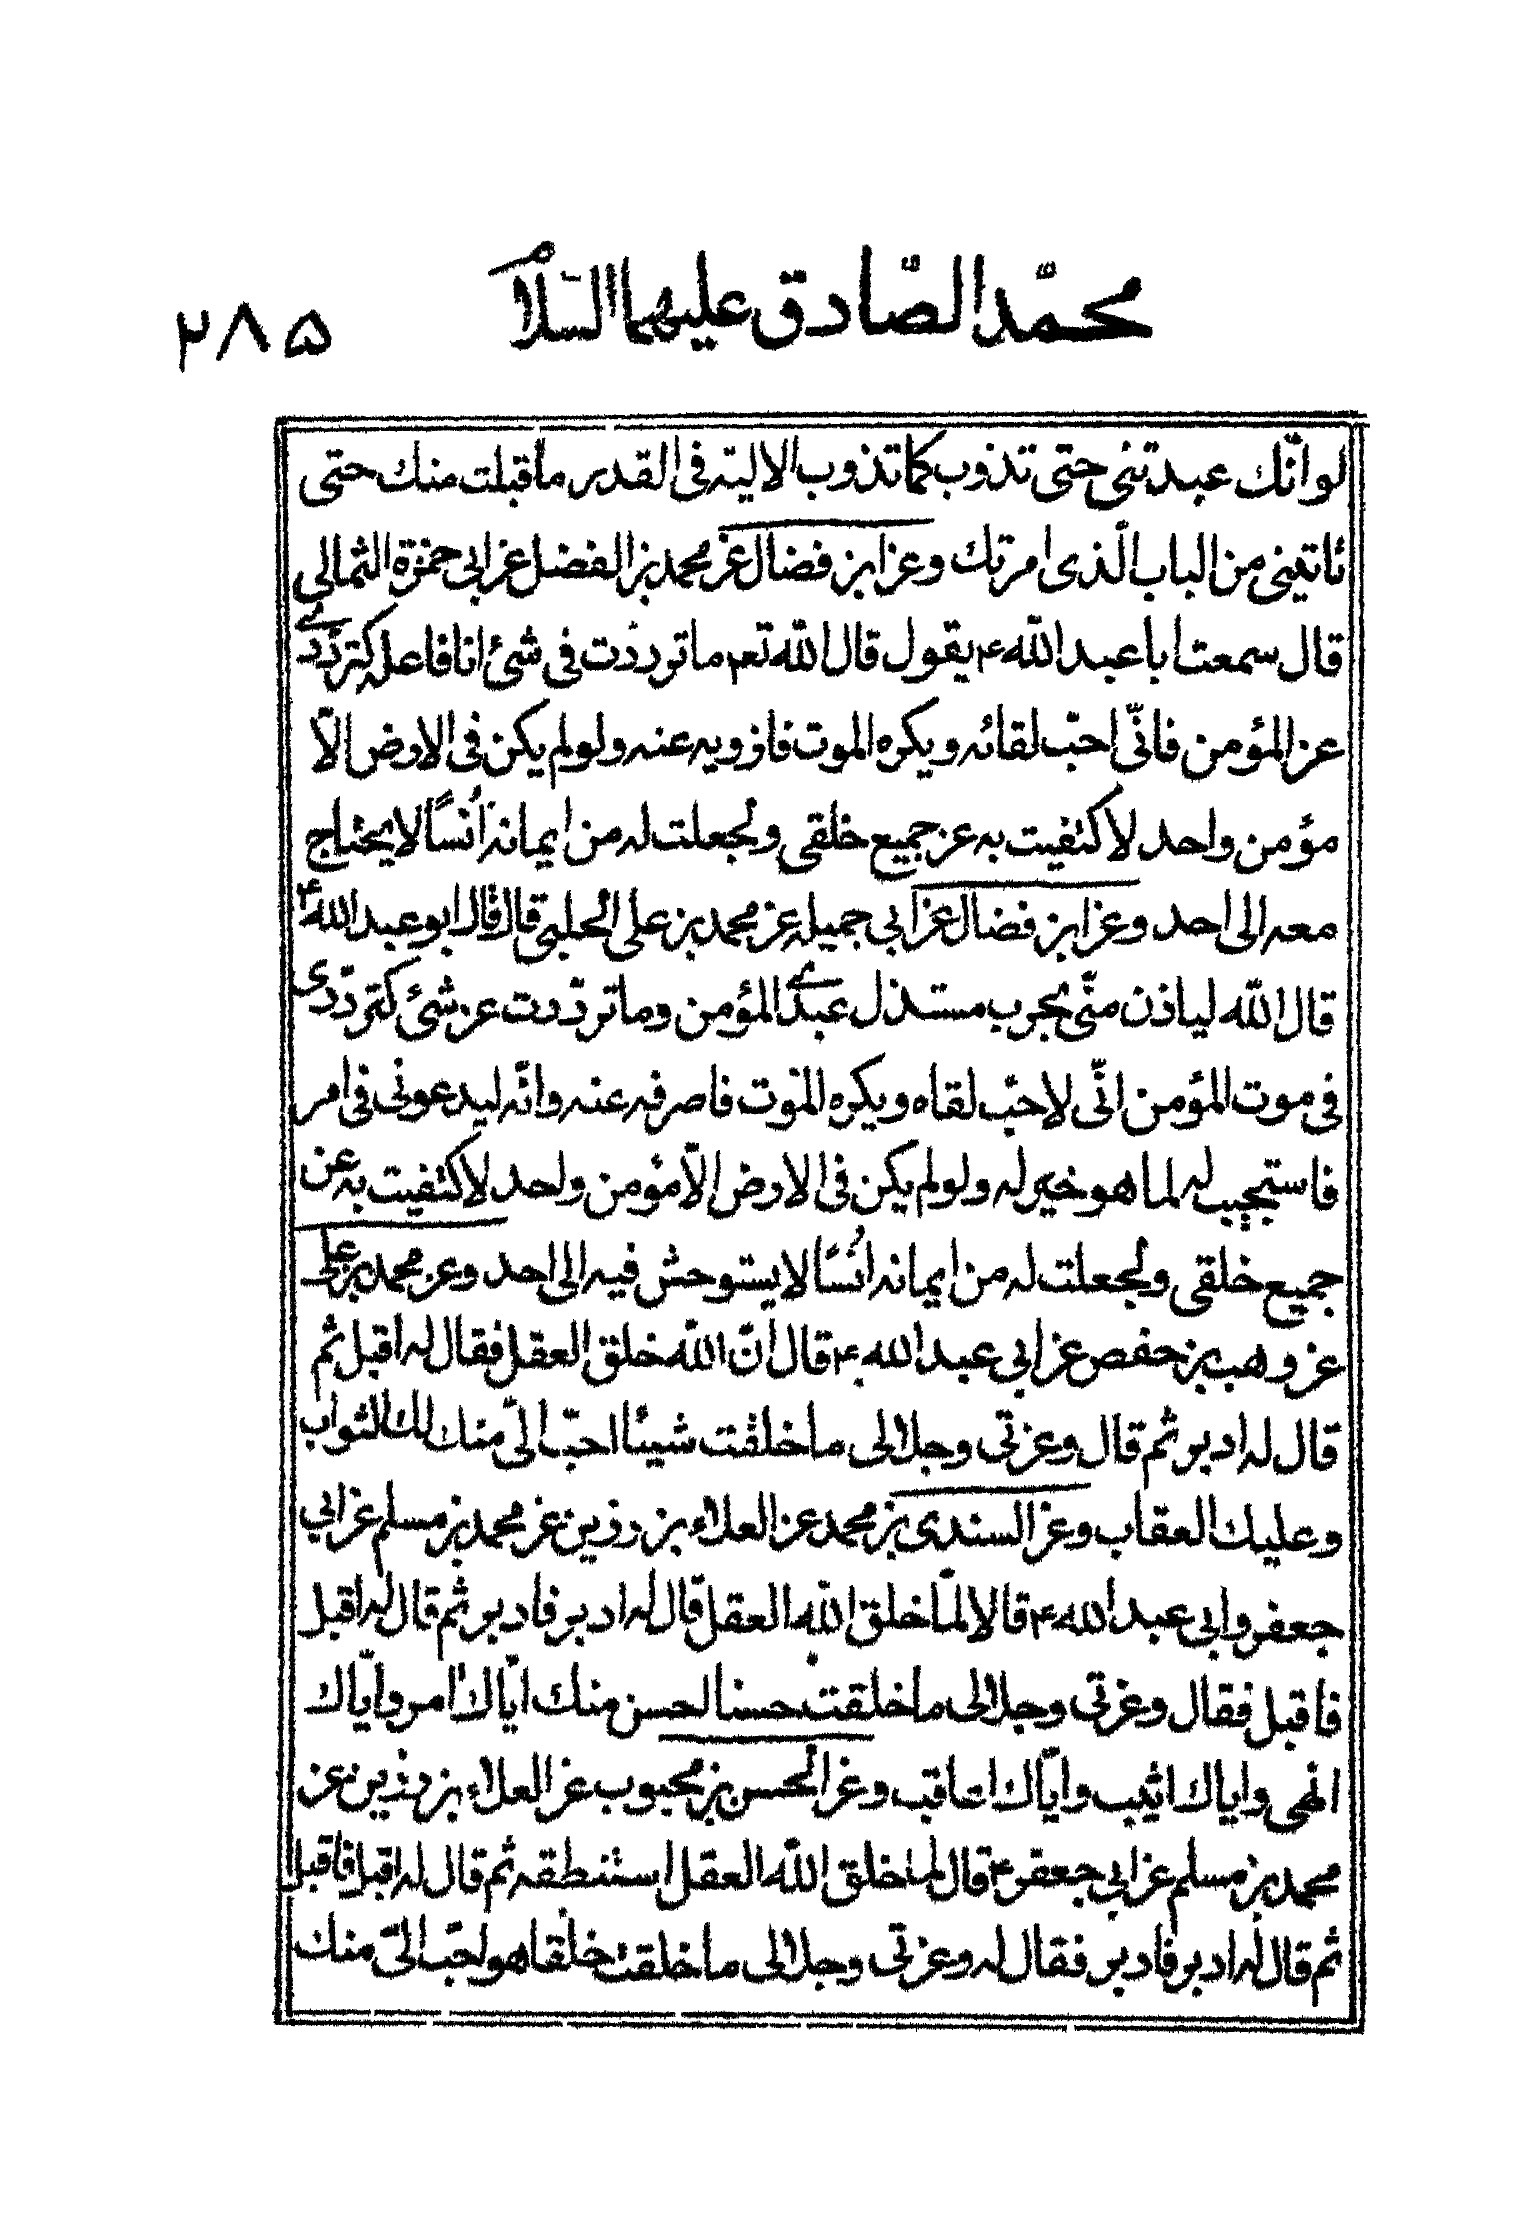 محمّد الصّادق عليهما السّلام ٢٨٥
لو انّك عبدتنى حتى تذوب كما تذوب الالية فى القدر ما قبلت منك حتى
تاتينى من الباب الّذى امرتك وعن ابن فضال عن محمد بن الفضل عن ابى حمزة الثمالى
قال سمعت ابا عبد اللّه ع يقول قال اللّه تعم ما ترددت فى شئ انا فاعله كترددى
عن المؤمن فانّى احبّ لقائه ويكره الموت فازويه عنه ولو لم يكن فى الارض الّا
مؤمن واحد لاكتفيت به عن جميع خلقى ولجعلت له من ايمانه اُنسًا لا يحتاج
معه الى احد وعن ابن فضال عن ابى جميله عن محمد بن على الحلبى قال قال ابو عبد اللّه ع
قال اللّه لياذن منّى بحرب مستذل عبدى المؤمن وما تردّدت عن شئ كتردّدى
فى موت المؤمن انّى لاحبّ لقاه ويكره الموت فاصرفه عنه وانّه ليدعونى فى امر
فاستجيب له لما هو خير له ولو لم يكن فى الارض الّا مؤمن واحد لاكتفيت به عن
جميع خلقى ولجعلت له من ايمانه اُنسًا لا يستوحش فيه الى احد وعن محمد بن على
عن وهب بن حفص عن ابى عبد الله ع قال انّ اللّه خلق العقل فقال له اقبل ثم
قال له ادبر ثم قال وعزتى وجلالى ما خلقت شيئا احبّ الىّ منك لك الثواب
وعليك العقاب وعن السندى بن محمد عن العلاء بن رزين عن محمد بن مسلم عن ابى
جعفر وابى عبد الله ع قالا لمّا خلق اللّه العقل قال له ادبر فادبر ثم قال له اقبل
فاقبل فقال وعزتى وجلالى ما خلقت حسنا احسن منك ايّاك آمر وايّاك
انهى واياك اثيب وايّاك اعاقب وعن الحسن بن محبوب عن العلاء بن رزين عن
محمد بن مسلم عن ابى جعفر ع قال لما خلق اللّه العقل استنطقه ثم قال له اقبل فاقبل
ثم قال له ادبر فادبر فقال له وعزتى وجلالى ما خلقت خلقا هو احبّ الىّ منك